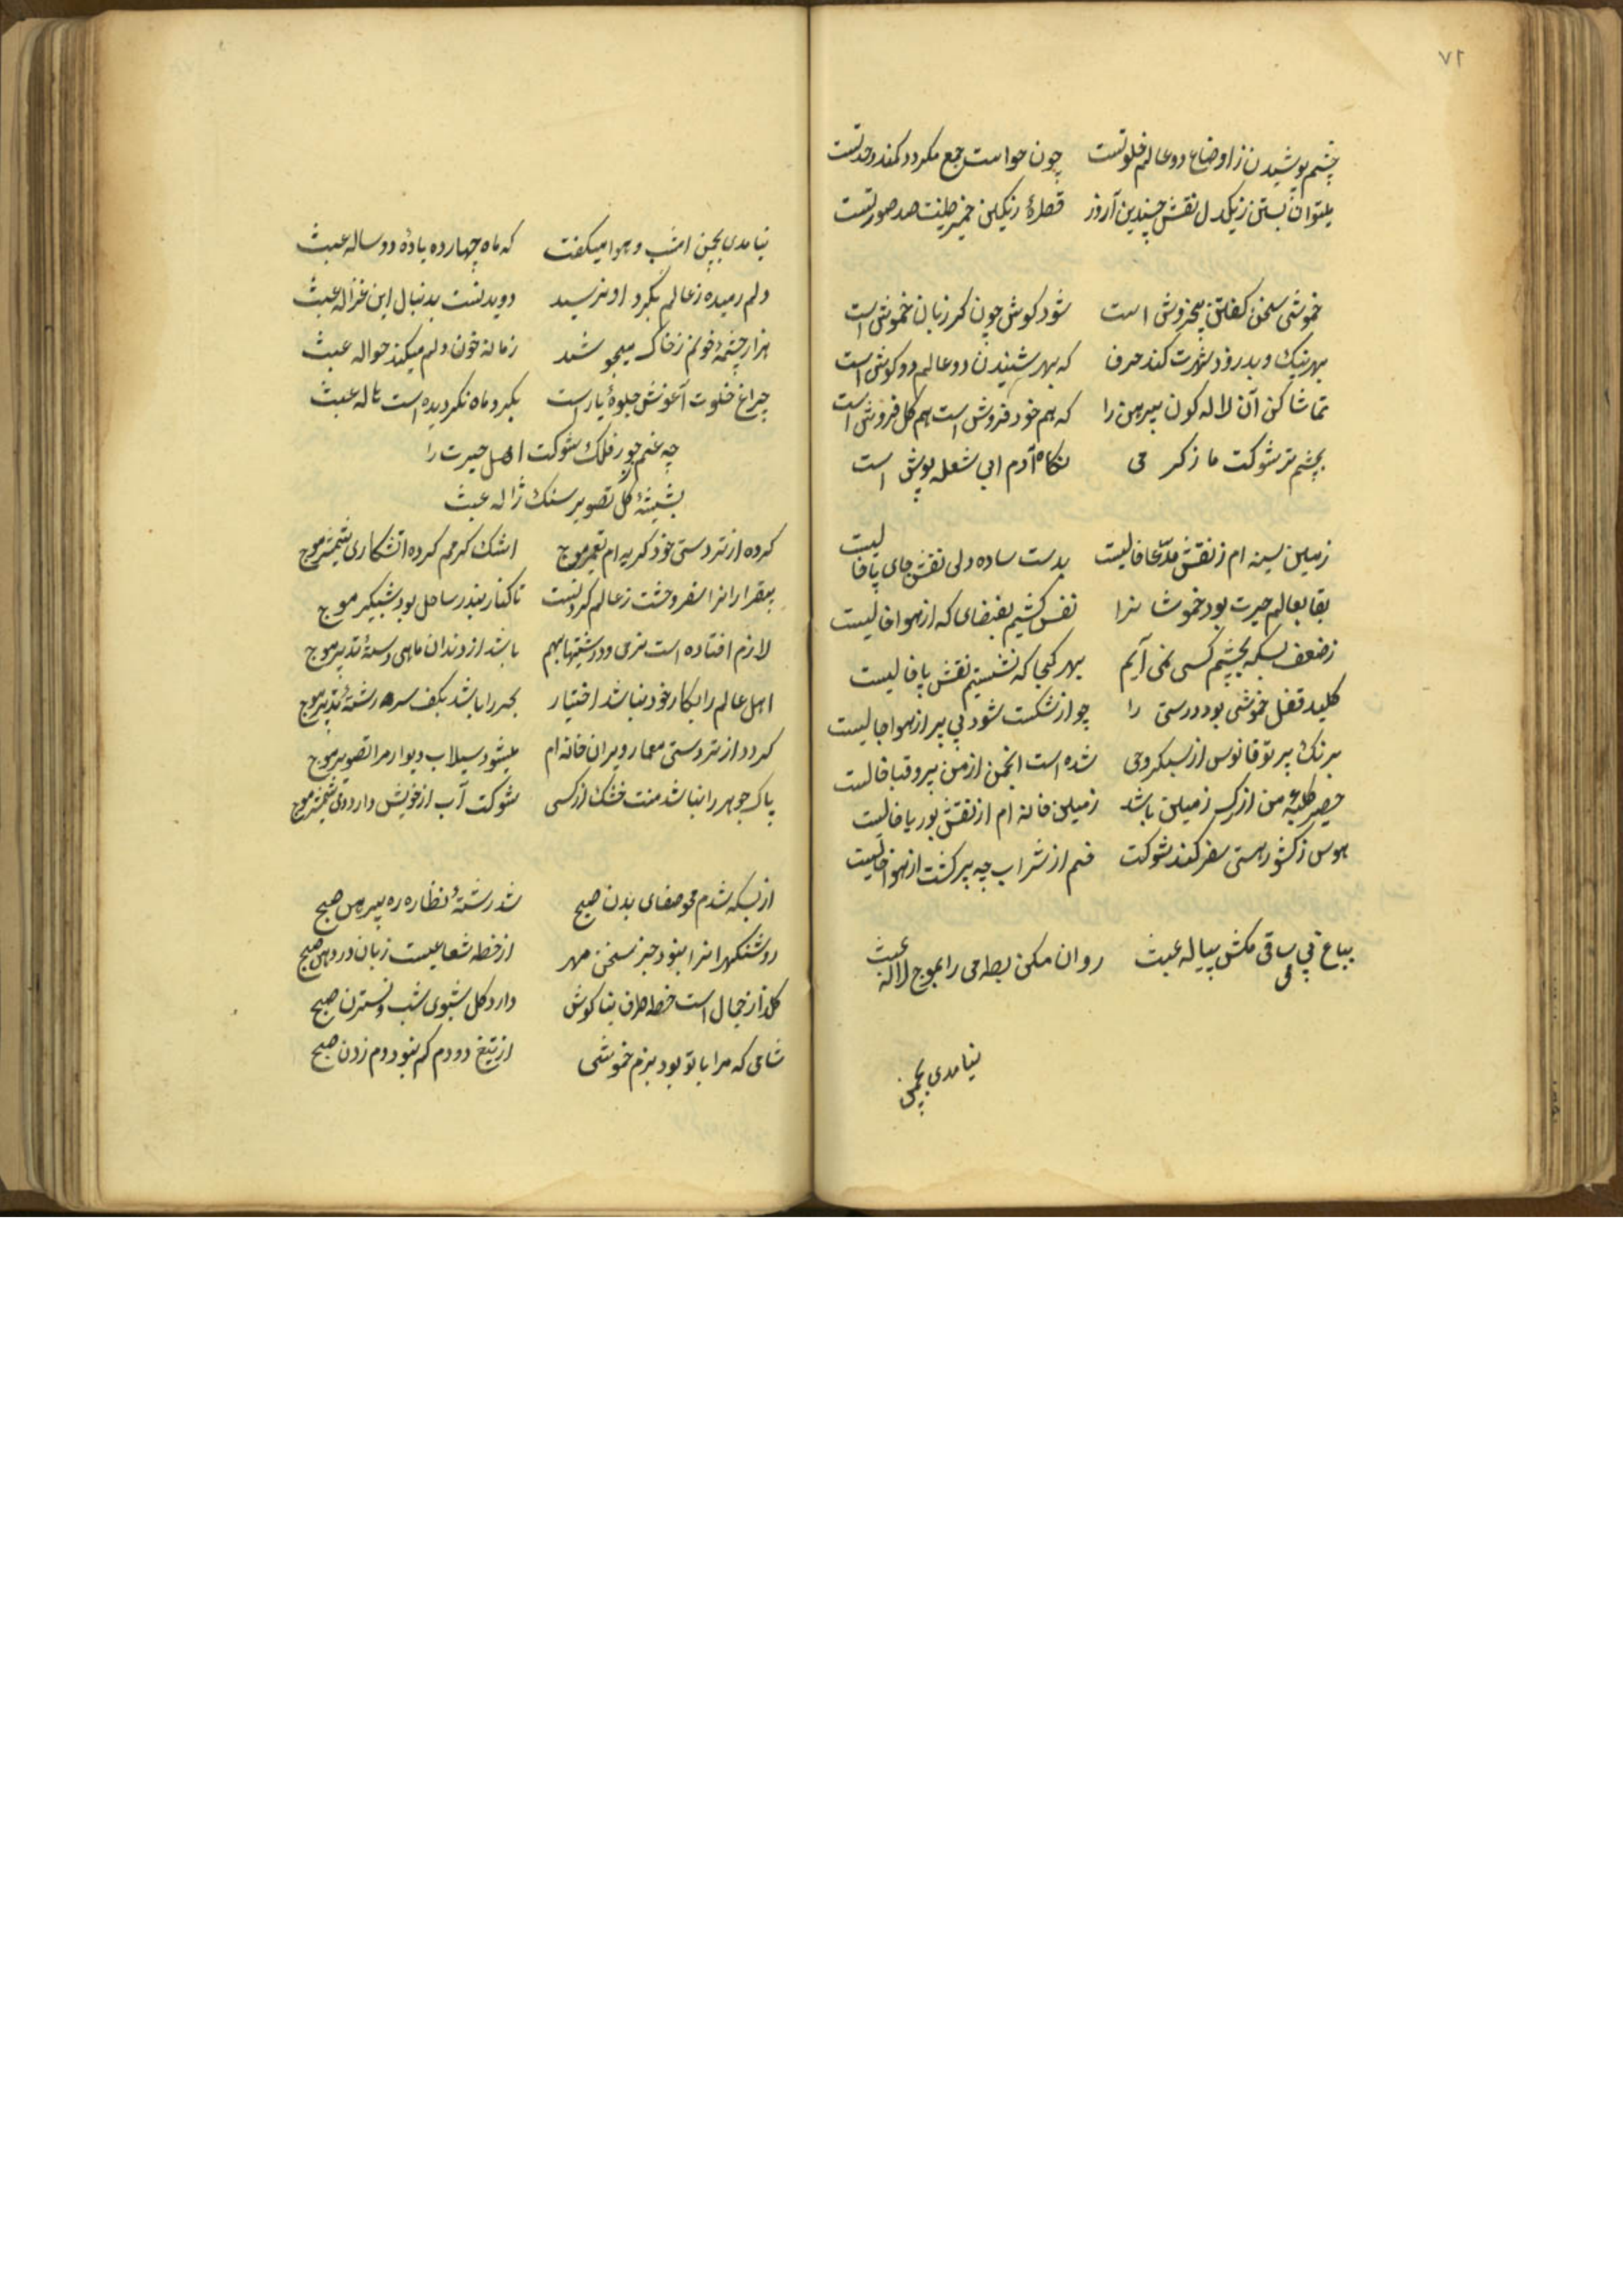 ۷۲
چشم پوشیدن ز اوضاع دو عالم خلوتست چون حواست جمع میکردد کمند وحدتست
میتوان بستن ز یکدل نقش چندین آرزو قطرهٔ رنکین خمیر طینت صد صورتست
خموشی سخن کفتن بیخروش است شود کوش چون کر زبان خموش است
بهر نیک و بد رو شهرت کند حرف که بهر شنیدن دو عالم دو کوش است
تماشا کن آن لاله کون پیرهن را که هم خود فروش است هم کل فروش است
بچشم تر شوکت ما ز کرمی نکاه آدم ابی شعله پوش است
زمین سینه ام ز نقش مدّعا خالیست بدست ساده دلی نقش جای پا خالیست
بقا بعالم حیرت بود خموشانرا نفس کشیم بفضای که از هوا خالیست
ز ضعف بسکه بچشم کسی نمی آیم بهر کجا که نشستیم نقش پا خالیست
کلید قفل خموشی بود درستی را چو از شکست شود نی پر از هوا خالیست
برنک پرتو فانوس از سبکروحی شده است انجمن از من پر و قبا خالیست
حصیر کلبهٔ من از زمین باشد زمین خانه ام از نقش بوریا خالیست
هوس ز کشور هستی سفر کند شوکت خم از شراب چه پر کشت از هوا خالیست
بباغ بی می ساقی مکش پیاله عبث روان مکن بط می را بموج لاله عبث
نیامدی بچمن
نیامدی بچمن امشب و هوا میکفت که ماه چهارده باده دو ساله عبث
دلم رمیده ز عالم بکرد او نرسید دویدنست بدنبال این غزاله عبث
هزار چشمهٔ خونم ز خاک میجوشد زمانه خون دلم میکند حواله عبث
چراغ خلوت آغوش جلوهٔ یار است بکرد ماه نکردیده است هاله عبث
چه غم جور فلک شوکت اهل حیرت را
بشیشهٔ کل تصویر سنک ژاله عبث
کرده از تردستی خود کریه ام تعمیر موج اشک کرمم کرده اتشکاری شمشیر موج
بیقرارانرا سفر وحشت ز عالم کردنست تا کنار بندر ساحل بود شبکیر موج
لازم افتاده است نرمی و درشتیها بهم باشد از دندان ماهی دستهٔ تدبیر موج
اهل عالم را بکار خود نباشد اختیار بحر را باشد بکف سر رشتهٔ تدبیر موج
کردد از تردستی معمار ویران خانه ام میشود سیلاب دیوار مرا تصویر موج
پاک جوهر را نباشد منت خشک از کسی شوکت آب از خویش دارد دم شمشیر موج
از بسکه شدم محو صفای بدن صبح شد رشتهٔ نظاره ره پیرهن صبح
روشنکهرانرا نبود جز سخن مهر از خط شعاعیست زبان در دهن صبح
کلزار خیال است خط طرف بناکوش دارد کل شبوی شب و نسترن صبح
شامی که مرا با تو بود بزم خموشی از تیغ دو دم کم نبود دم زدن صبح